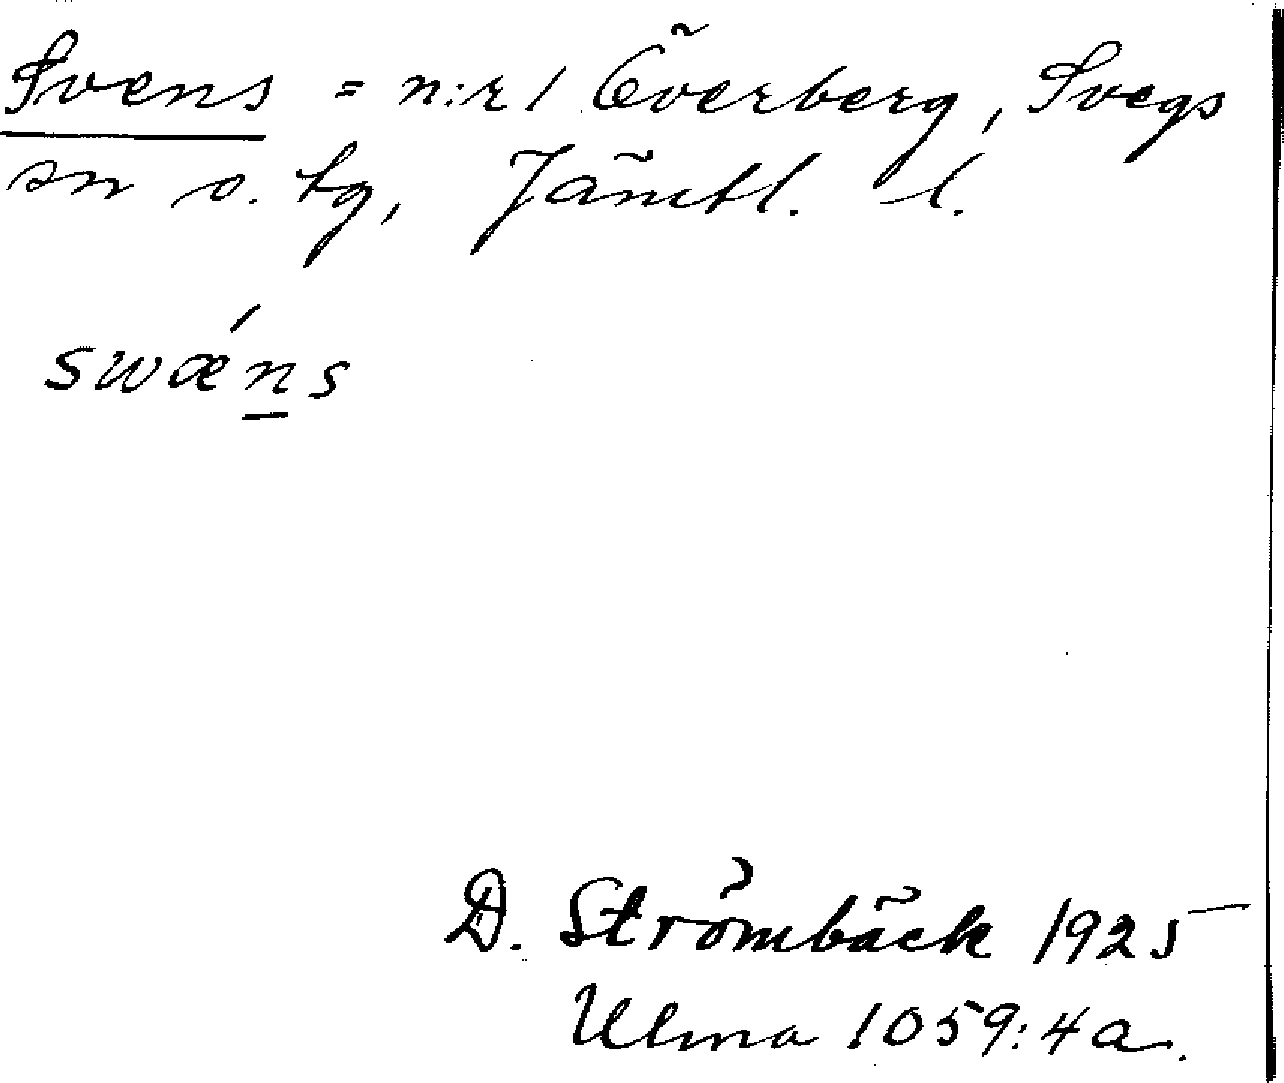 Svens = n:r 1 Överberg, Svegs
sn o. tg, Jämtl. l.
swǽn̲s
D. Strömbäck 1925
Ulma 1059:4a.